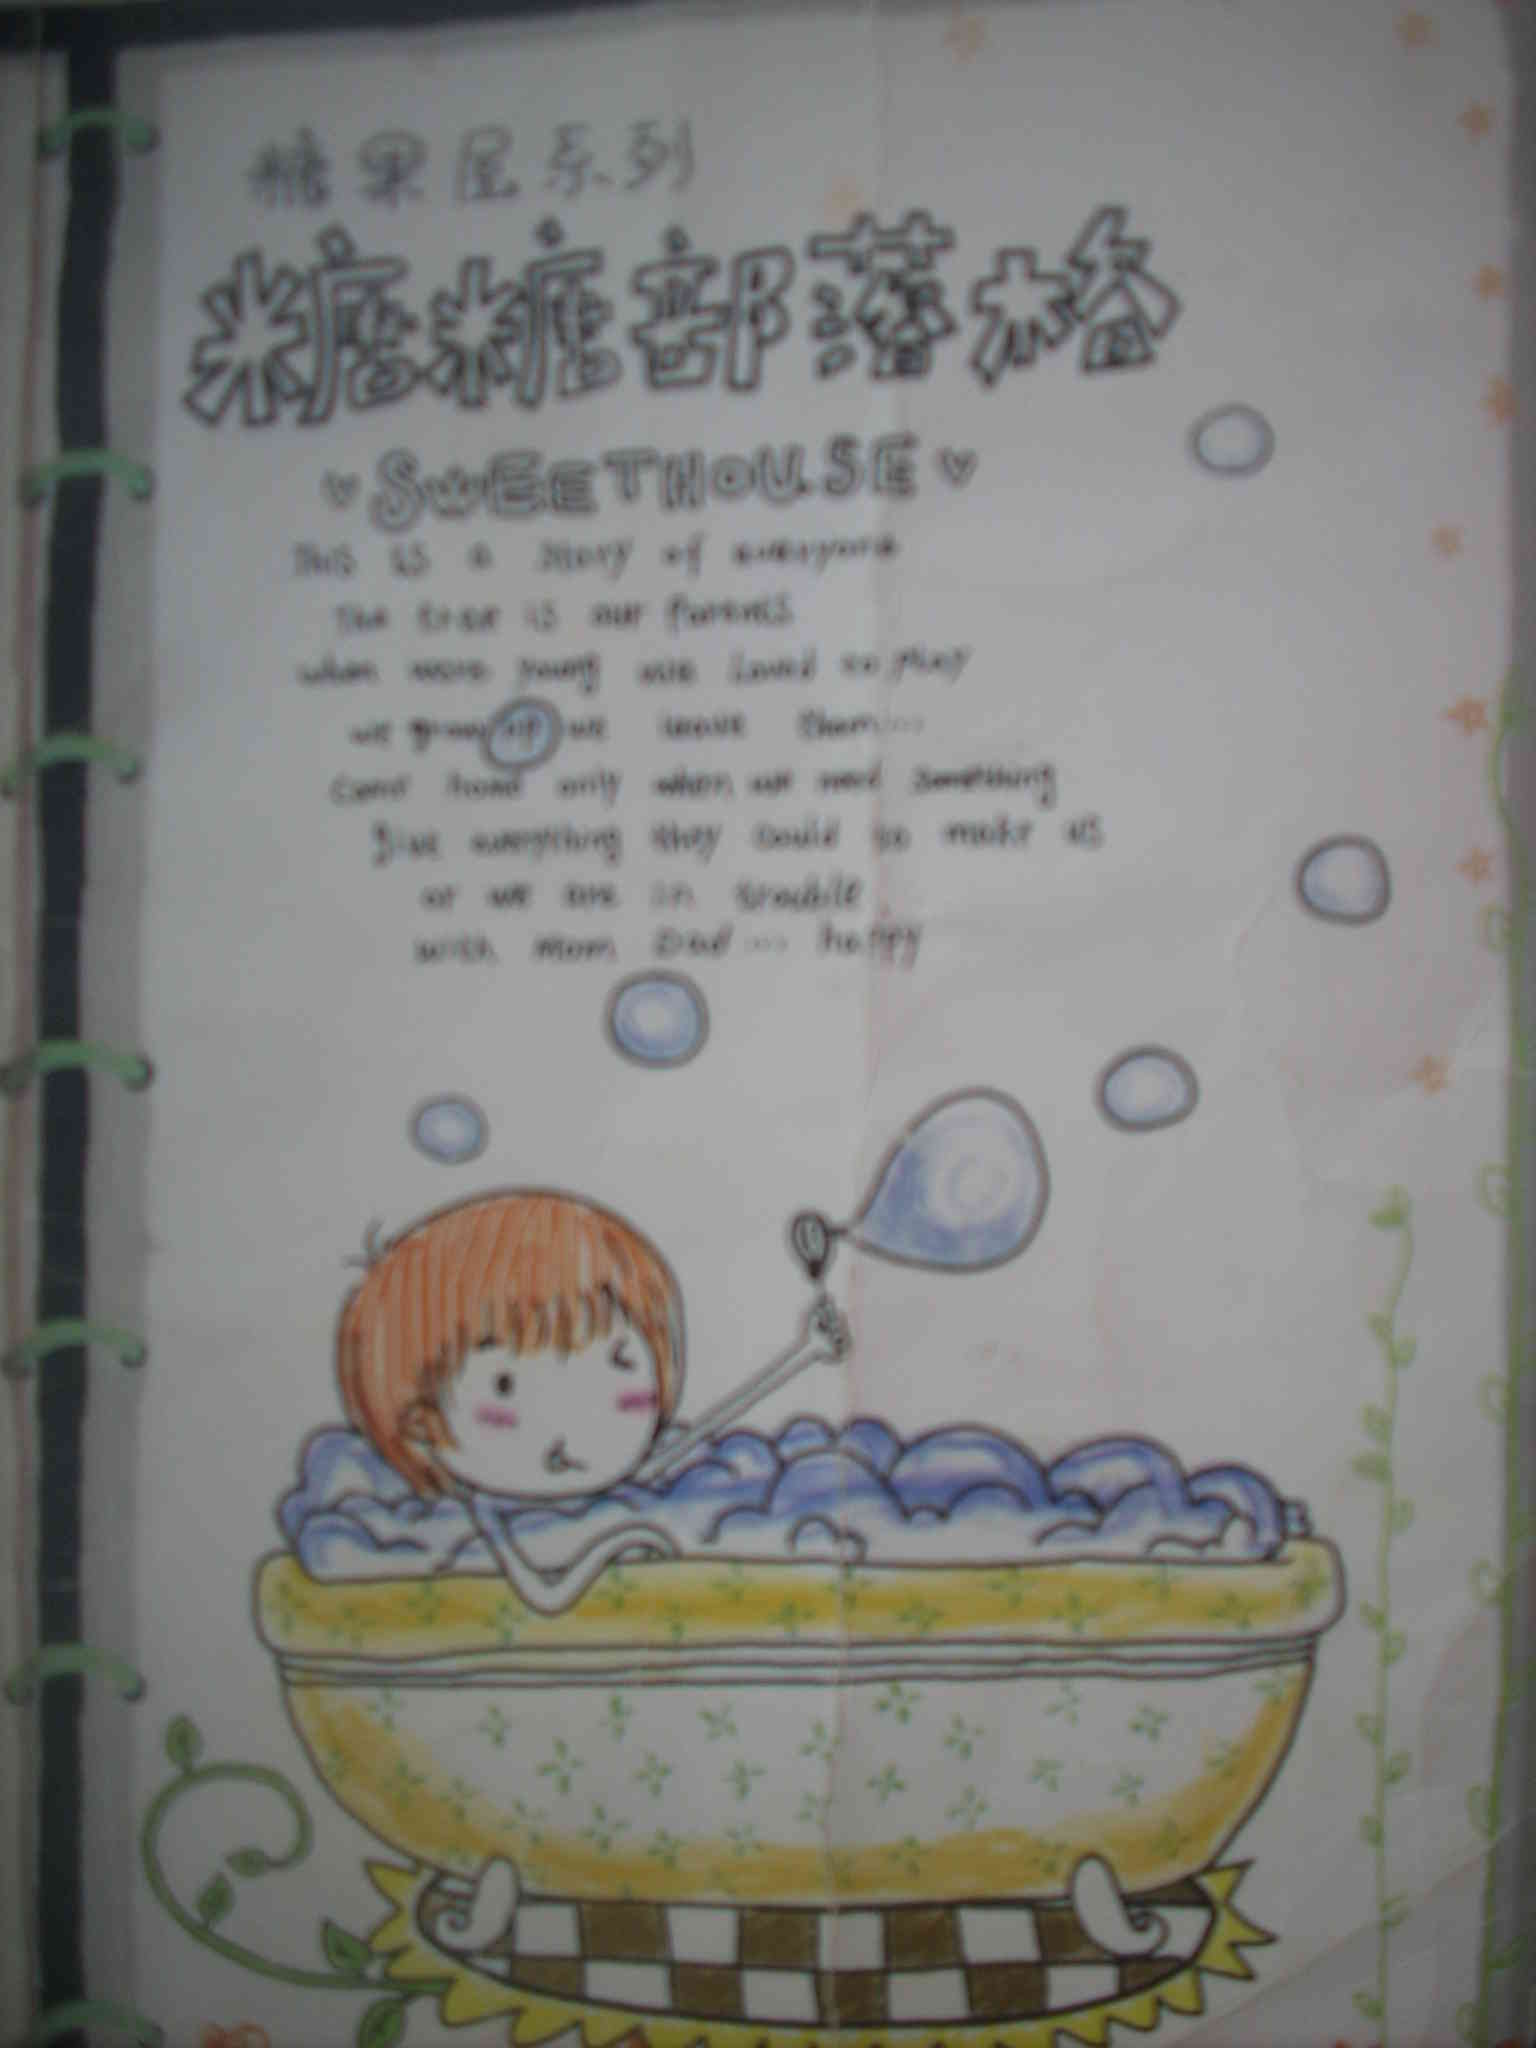 糖果屋系列
糖糖部落格
SWEETHOUSE
This is a story of everyone
The tree is our parents
when were young we Loved to play
we grow up we leave them...
come home only when we need something
Give everything they could to make us
or we are in trouble
with Mom Dad... happy